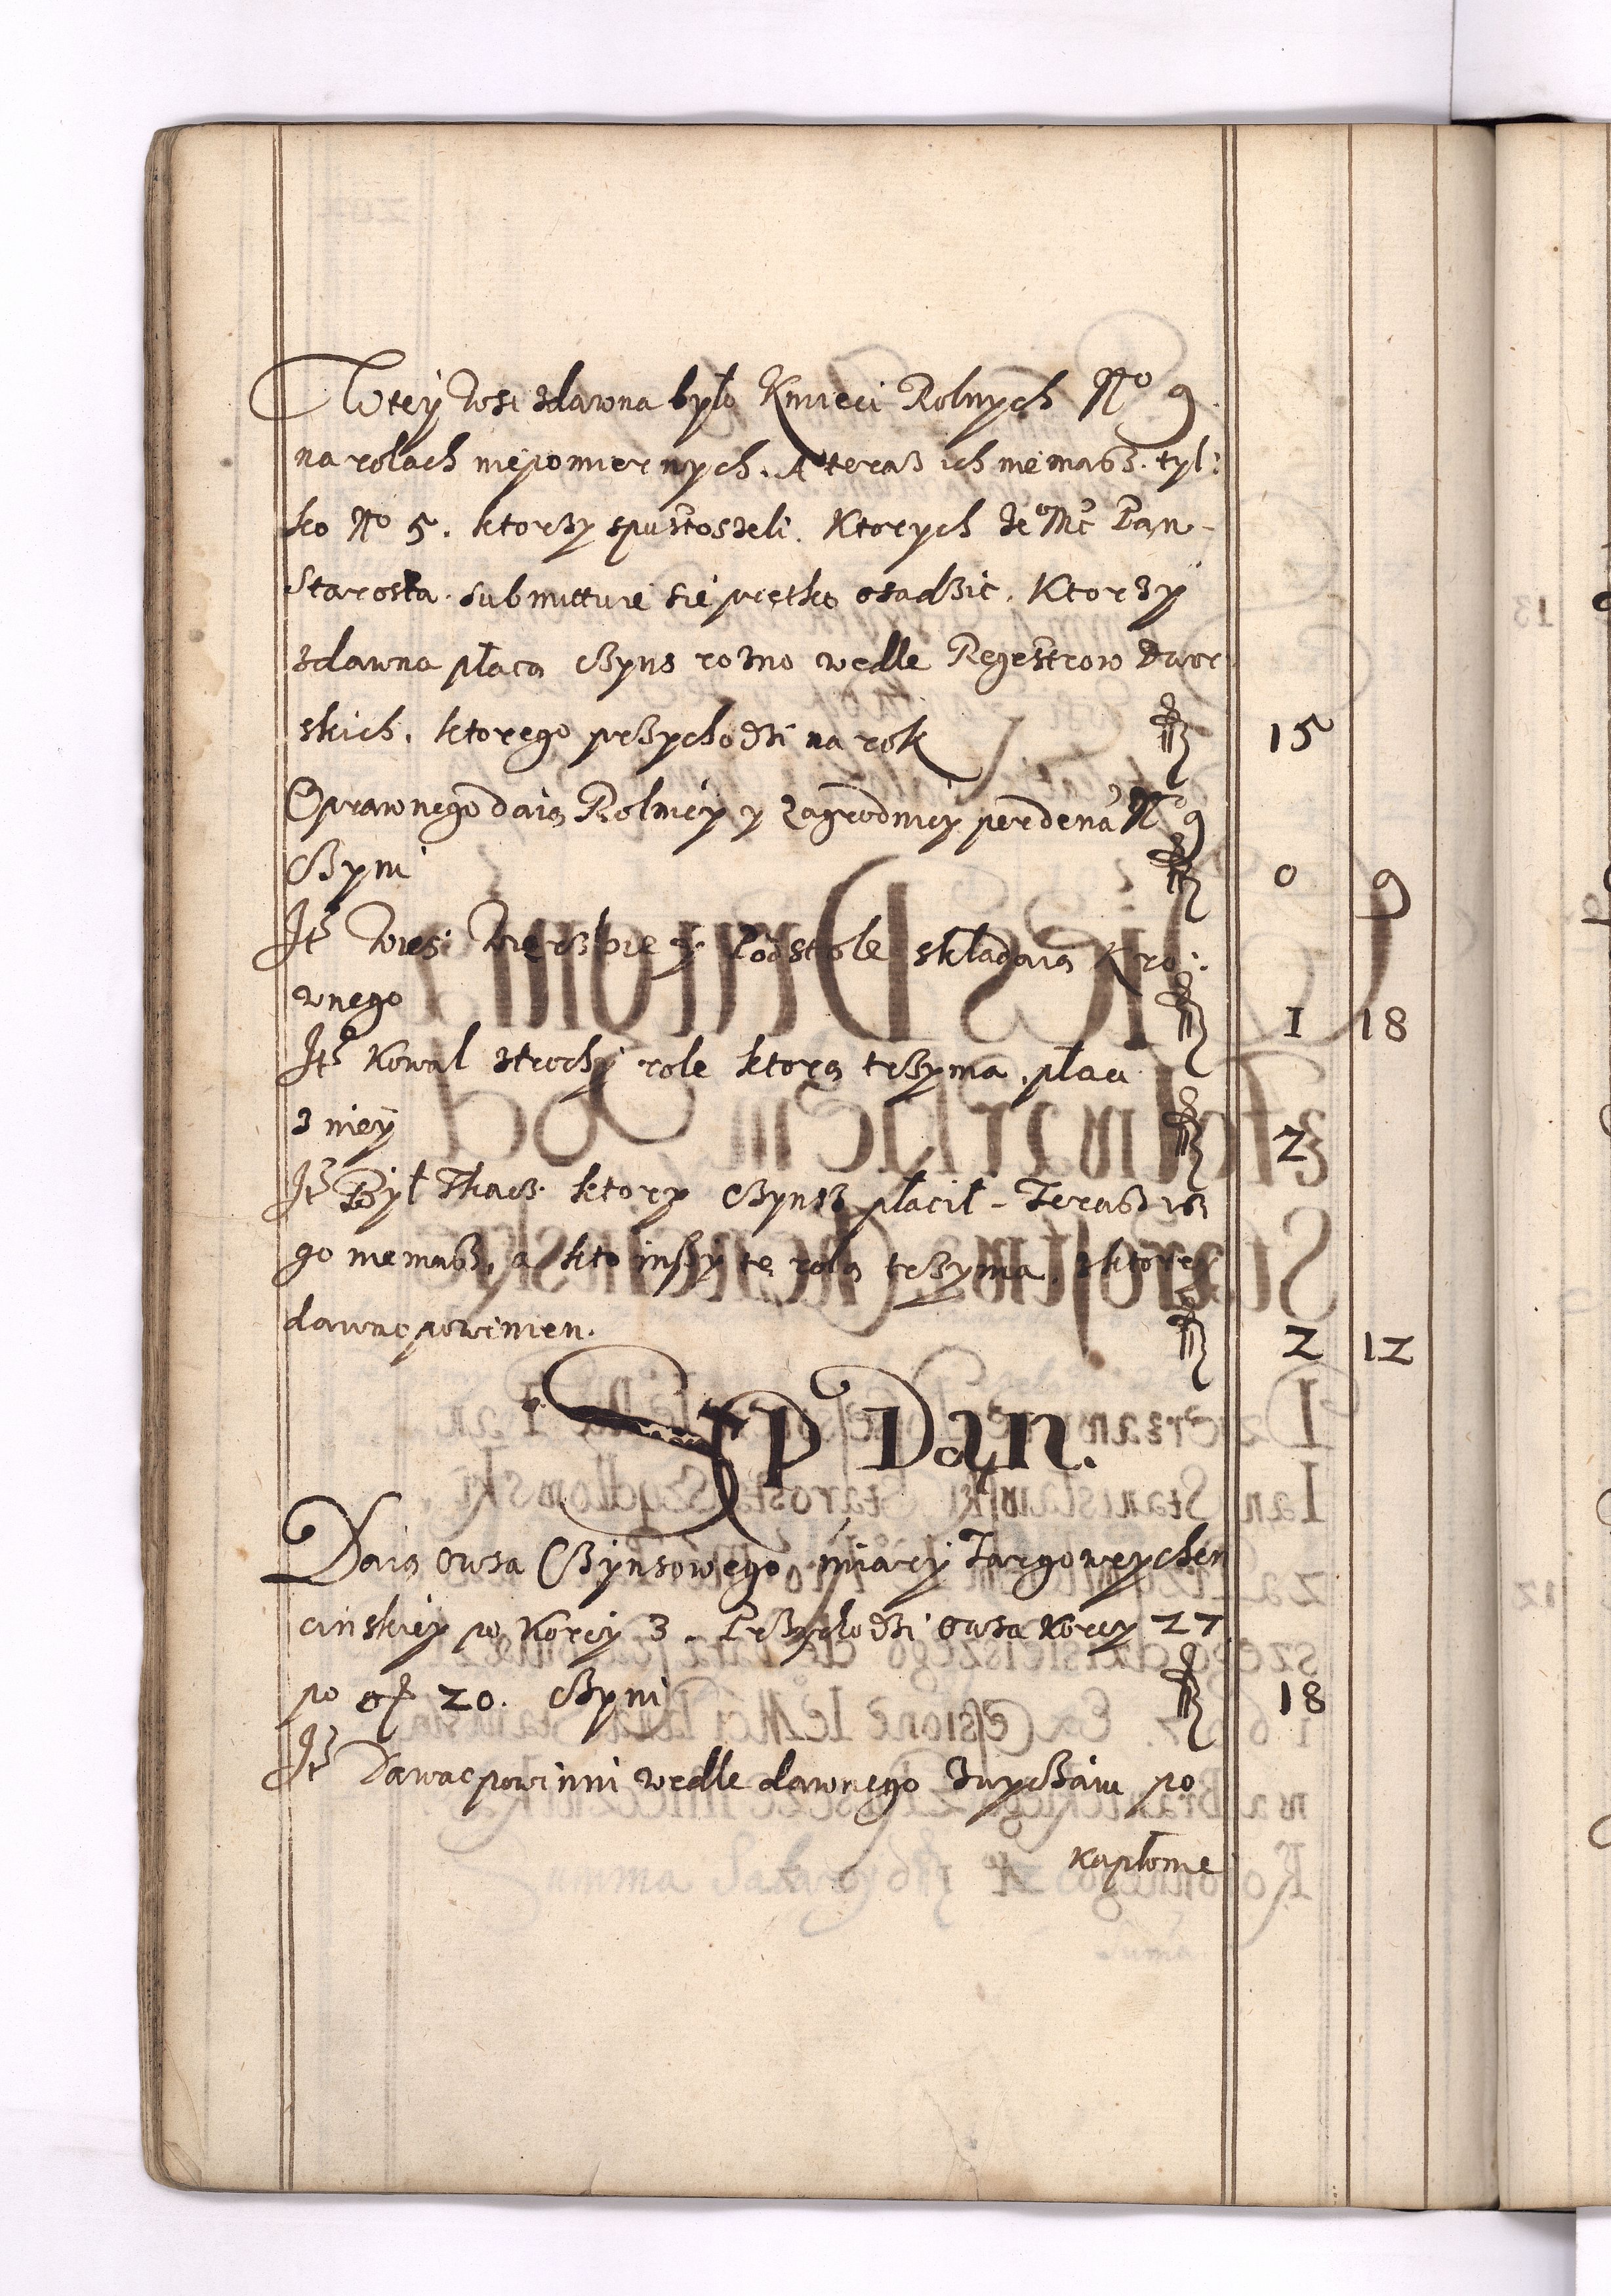 Wtey Wsi zdawna było Kmieci Rolnych No 9
na rolach niepomiernych. A teraz ich niemasz. tyl:
ko No 5. ktorzy spustoszeli. Ktorych Jeo Mć Pan
Starosta submittuie sie pretko osadzić. Ktorzy
zdawna płaca Czyns rowno wedle Regestrow Dwor
skich. ktorego przychodzi na rok fl 15
Oprawnego daią Rolnicy y Zagrodnicy per dena No 9
Czyni fl 0 9
Ite Wies Wierzbie y Podstole składaią Kro:
wnego fl 1 18
Ite Kowal ztrochy role ktorą trzyma, płaci
z niey fl 2
Ite Był Tkacz ktory Czynsz płacił - Teraz iuz
go niemasz, a kto inszy te rolą trzyma, zktorey
dawac powinien. fl 2 12
Typ Dan.
Daią Owsa Czynsowego miary Targowey chen
cinskiey po Korcy 3. Przychodzi Owsa Korcy 27
po gr 20. Czyni fl 18
Ite Dawac powinni wedle dawnego Zwyczaiu po
kapłonie